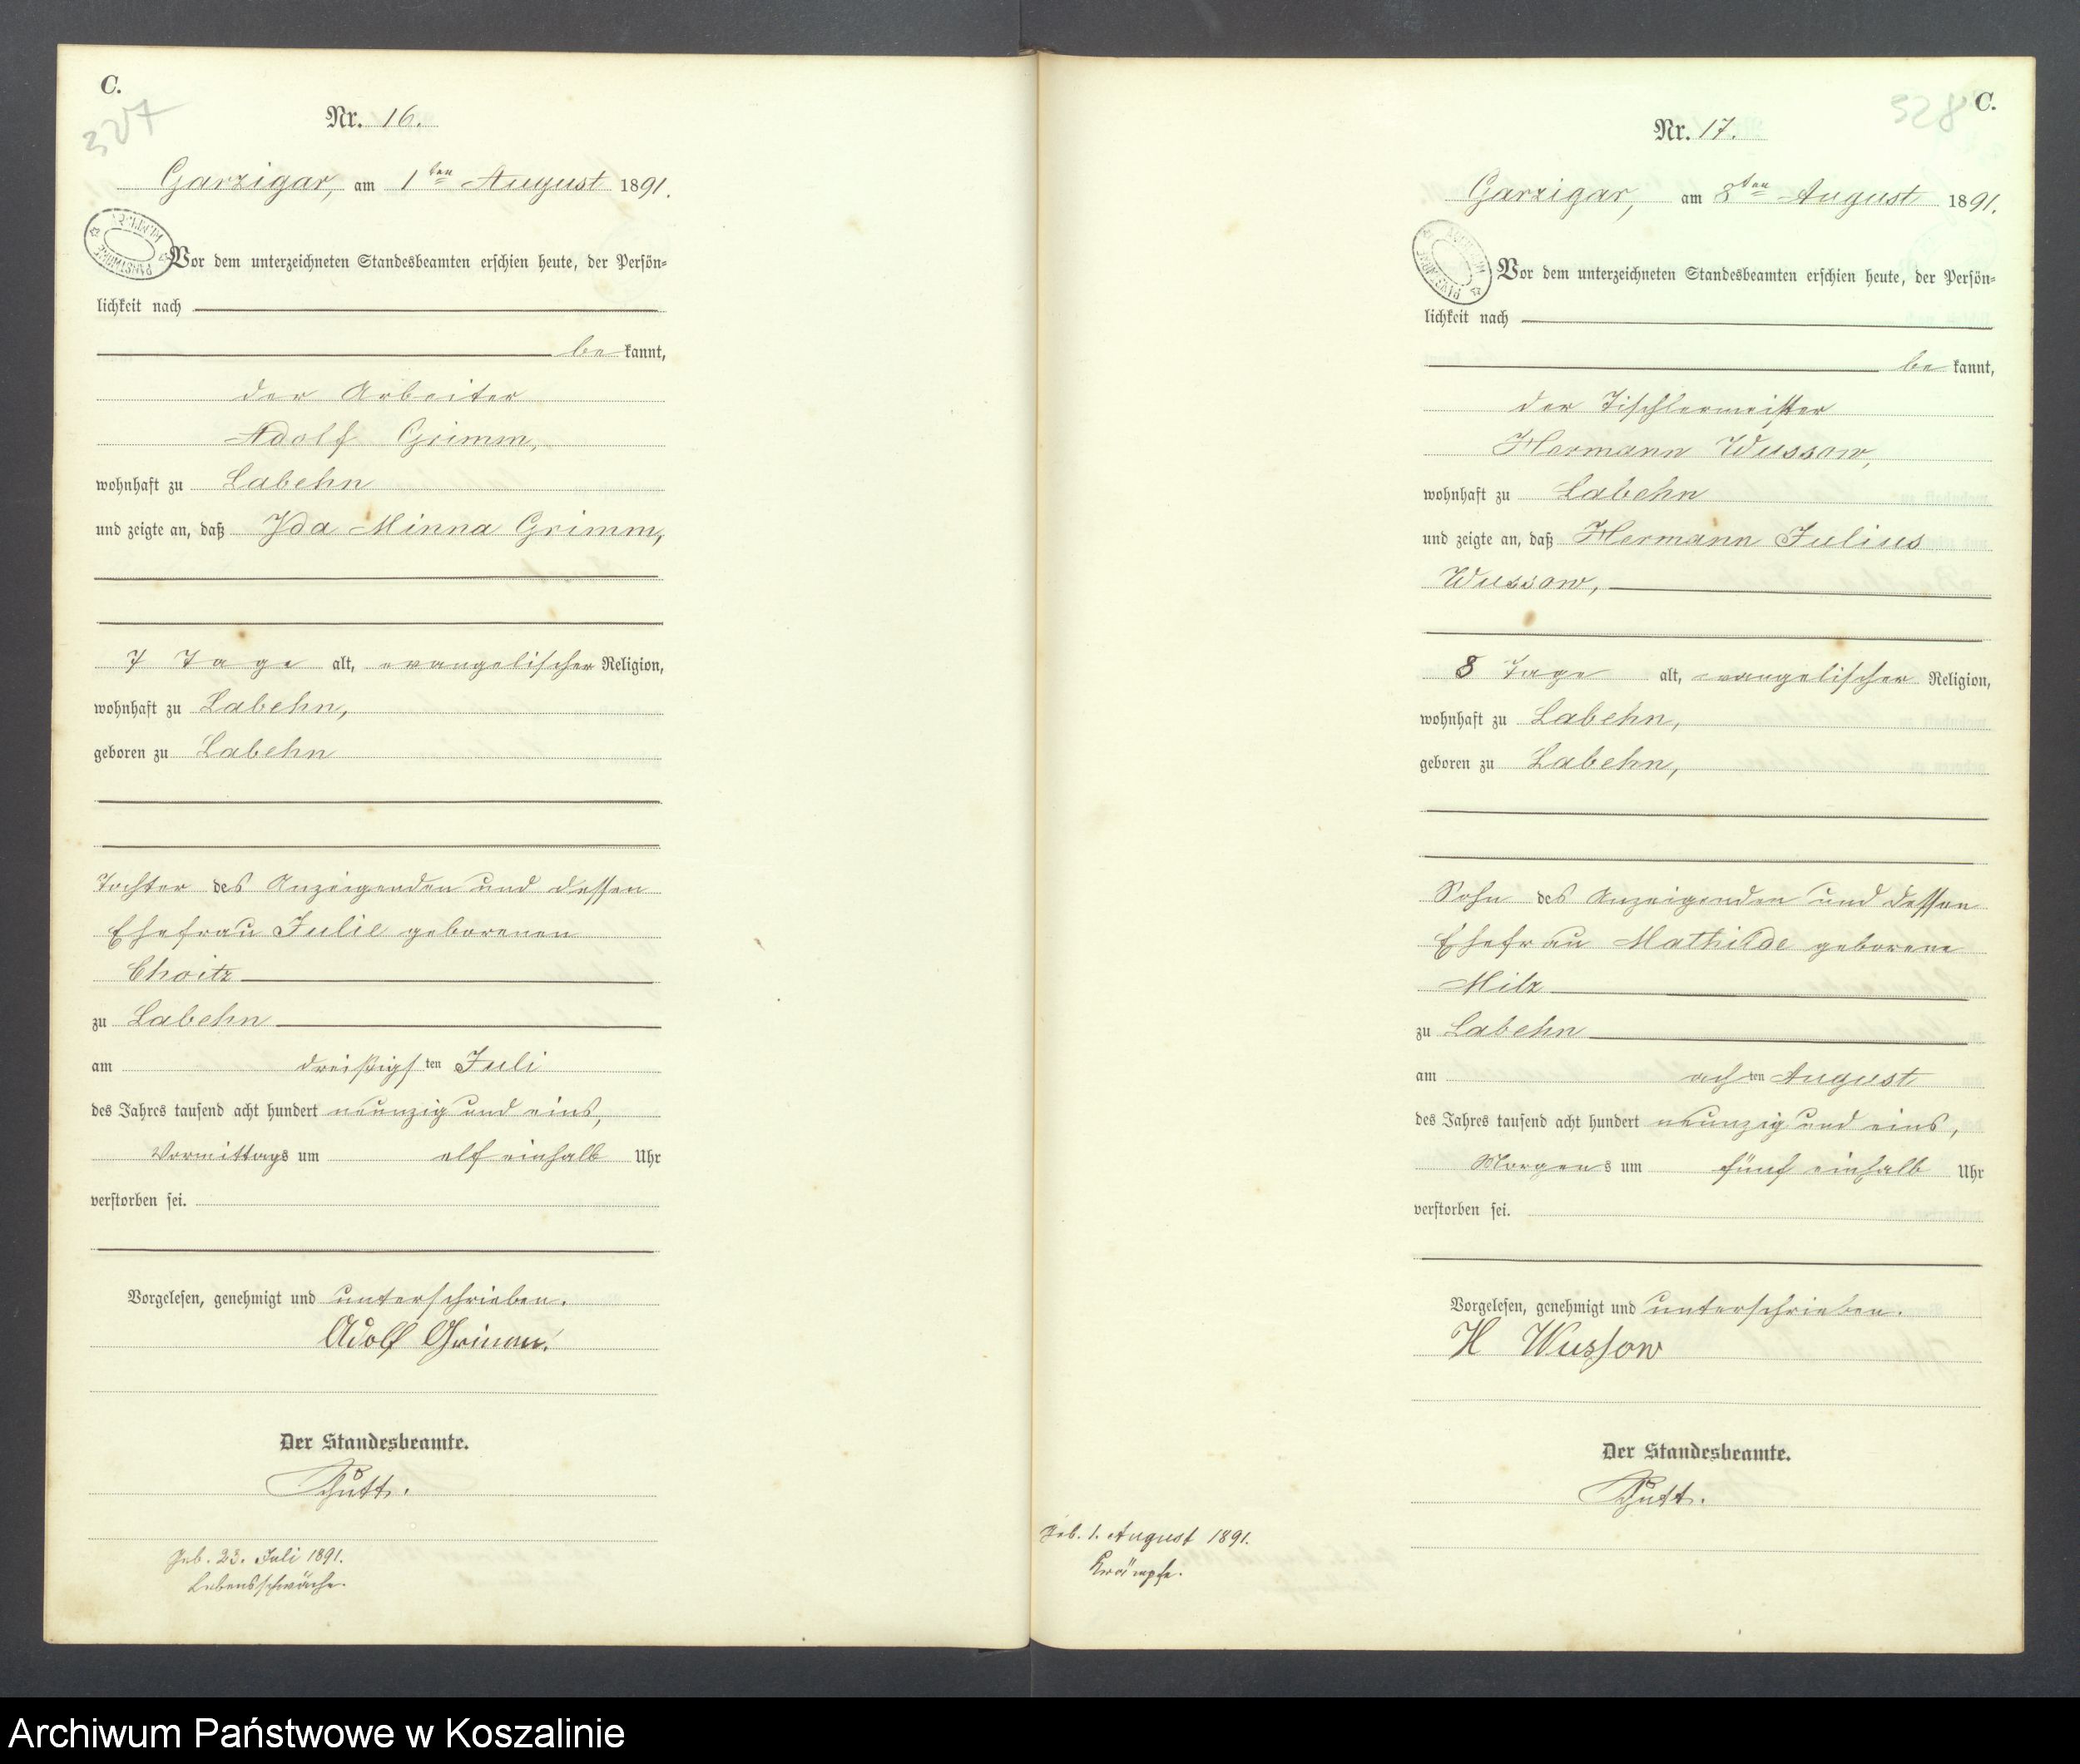 C.
327
Nr. 16.
Garzigar, am 1ten August 1891.
Vor dem unterzeichneten Standesbeamten erschien heute, der Persön-
lichkeit nach
be kannt,
der Arbeiter
Adolf Grimm,
wohnhaft zu Labehn
und zeigte an, daß Ida Minna Grimm,
7 Tage alt, evangelischer Religion,
wohnhaft zu Labehn,
geboren zu Labehn
Tochter des Anzeigenden und dessen
Ehefrau Julie geborenen
Choitz
zu Labehn
am dreißigsten Juli
des Jahres tausend acht hundert neunzig und eins,
Vormittags um elf einhalb Uhr
verstorben sei.
Vorgelesen, genehmigt und unterschrieben.
Adolf Grimm.
Der Standesbeamte.
Geb. 23. Juli 1891.
Lebensschwäche.
C.
328
Nr. 17.
Garzigar, am 8ten August 1891.
Vor dem unterzeichneten Standesbeamten erschien heute, der Persön-
lichkeit nach
be kannt,
der Tischlermeister
Hermann Wussow,
wohnhaft zu Labehn
und zeigte an, daß Hermann Julius
Wussow,
8 Tage alt, evangelischer Religion,
wohnhaft zu Labehn,
geboren zu Labehn,
Sohn des Anzeigenden und dessen
Ehefrau Mathilde geborene
Milz
zu Labehn
am achten August
des Jahres tausend acht hundert neunzig und eins,
Morgens um fünf einhalb Uhr
verstorben sei.
Vorgelesen, genehmigt und unterschrieben.
H Wussow
Der Standesbeamte.
Geb. 1. August 1891.
Krämpfe.
Archiwum Państwowe w Koszalinie